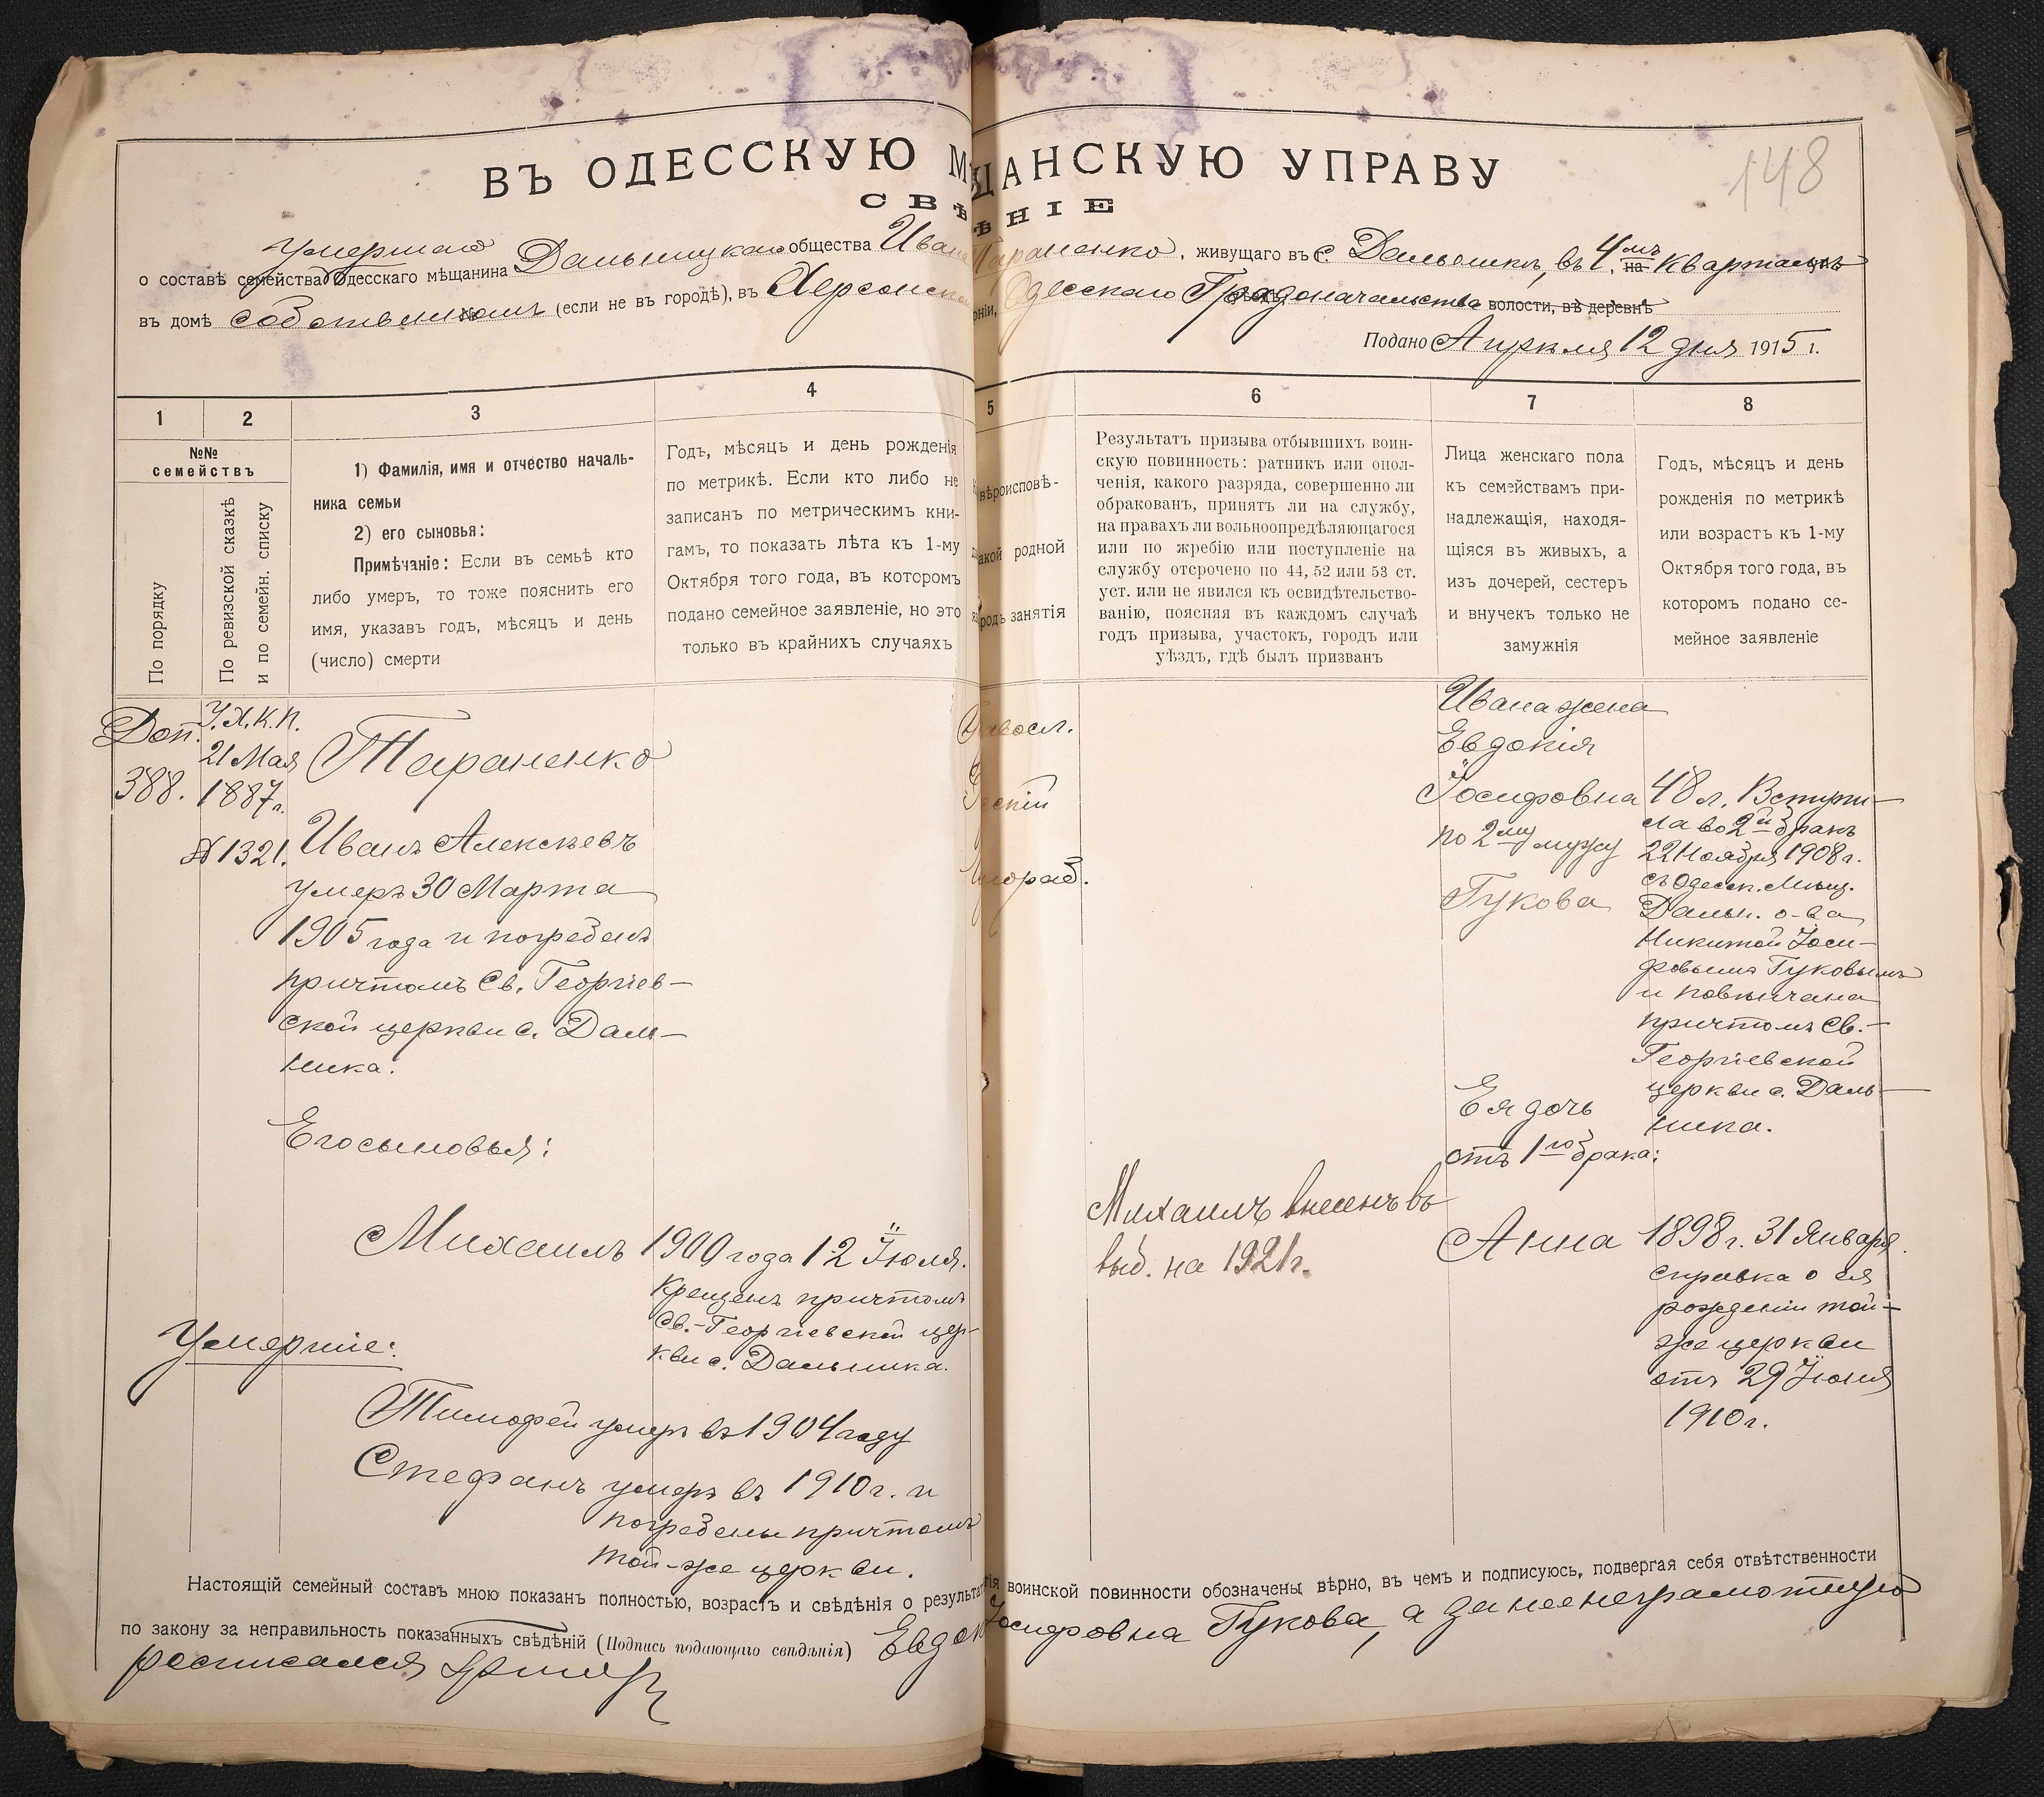 148
ВЪ ОДЕССКУЮ М ЩАНСКУЮ УПРАВУ
СВѢ ѢНІЕ
умершаго
о составѣ семейства Одесскаго мѣщанина Дальницкаго общества Ивана Тараненко, живущаго въ с. Дальникѣ, въ 4мъ на кварталѣ
въ домѣ собственномъ № (если не въ городѣ), въ Херсонской рніи, Одесскаго Градоначальства волости, въ деревнѣ
Подано Апрѣля 12 дня 1915 г.
1 2 3 4 5 6 7 8
№№ семействъ
По порядку
По ревизской сказкѣ
и по семейн. списку
1) Фамилія, имя и отчество началь-
ника семьи
2) его сыновья:
Примѣчаніе: Если въ семьѣ кто
либо умеръ, то тоже пояснить его
имя, указавъ годъ, мѣсяцъ и день
(число) смерти
Годъ, мѣсяцъ и день рожденія
по метрикѣ. Если кто либо не
записанъ по метрическимъ кни-
гамъ, то показать лѣта къ 1-му
Октября того года, въ которомъ
подано семейное заявленіе, но это
только въ крайнихъ случаяхъ
вѣроисповѣ-
акой родной
родъ занятія
Результатъ призыва отбывшихъ воин-
скую повинность: ратникъ или опол-
ченія, какого разряда, совершенно ли
обракованъ, принятъ ли на службу,
на правахъ ли вольноопредѣляющагося
или по жребію или поступленіе на
службу отсрочено по 44, 52 или 53 ст.
уст. или не явился къ освидѣтельство-
ванію, поясняя въ каждомъ случаѣ
годъ призыва, участокъ, городъ или
уѣздъ, гдѣ былъ призванъ
Лица женскаго пола
къ семействамъ при-
надлежащія, находя-
щіяся въ живыхъ, а
изъ дочерей, сестеръ
и внучекъ только не
замужнія
Годъ, мѣсяцъ и день
рожденія по метрикѣ
или возрастъ къ 1-му
Октября того года, въ
которомъ подано се-
мейное заявленіе
Доп.
388.
У.Х.К.П.
21 Мая
1887 г.
№ 1321.
Тараненко
Иванъ Алексѣевъ
умеръ 30 Марта
1905 года и погребенъ
причтомъ Св. Георгіев-
ской церкви с. Даль-
ника.
Его сыновья:
Михаилъ
1900 года 12 Іюля.
Крещенъ причтомъ
Св.-Георгіевской цер-
кви с. Дальника.
Умершіе:
Тимофей умеръ въ 1904 году
Стефанъ умеръ въ 1910 г. и
погребены причтомъ
той-же церкви.
Правосл.
Русскій
Чернораб.
Михаилъ внесенъ въ
выб. на 1921 г.
Ивана жена
Евдокія
Іосифовна
по 2му мужу
Гукова
48 л. Вступи-
ла во 2й бракъ
22 Ноября 1908 г.
съ Одесск. Мѣщ.
Дальн. о-ва
Никитой Іоси-
фовымъ Гуковымъ
и повѣнчана
причтомъ Св.-
Георгіевской
церкви с. Даль-
ника.
Ея дочь
отъ 1го брака:
Анна
1898 г. 31 Января.
Справка о ея
рожденіи той-
же церкви
отъ 29 Іюня
1910 г.
Настоящій семейный составъ мною показанъ полностью, возрастъ и свѣдѣнія о результат ія воинской повинности обозначены вѣрно, въ чемъ и подписуюсь, подвергая себя отвѣтственности
по закону за неправильность показанныхъ свѣдѣній (Подпись подающаго свѣдѣнія) Евдок Іосифовна Гукова, а за нее неграмотную
росписался